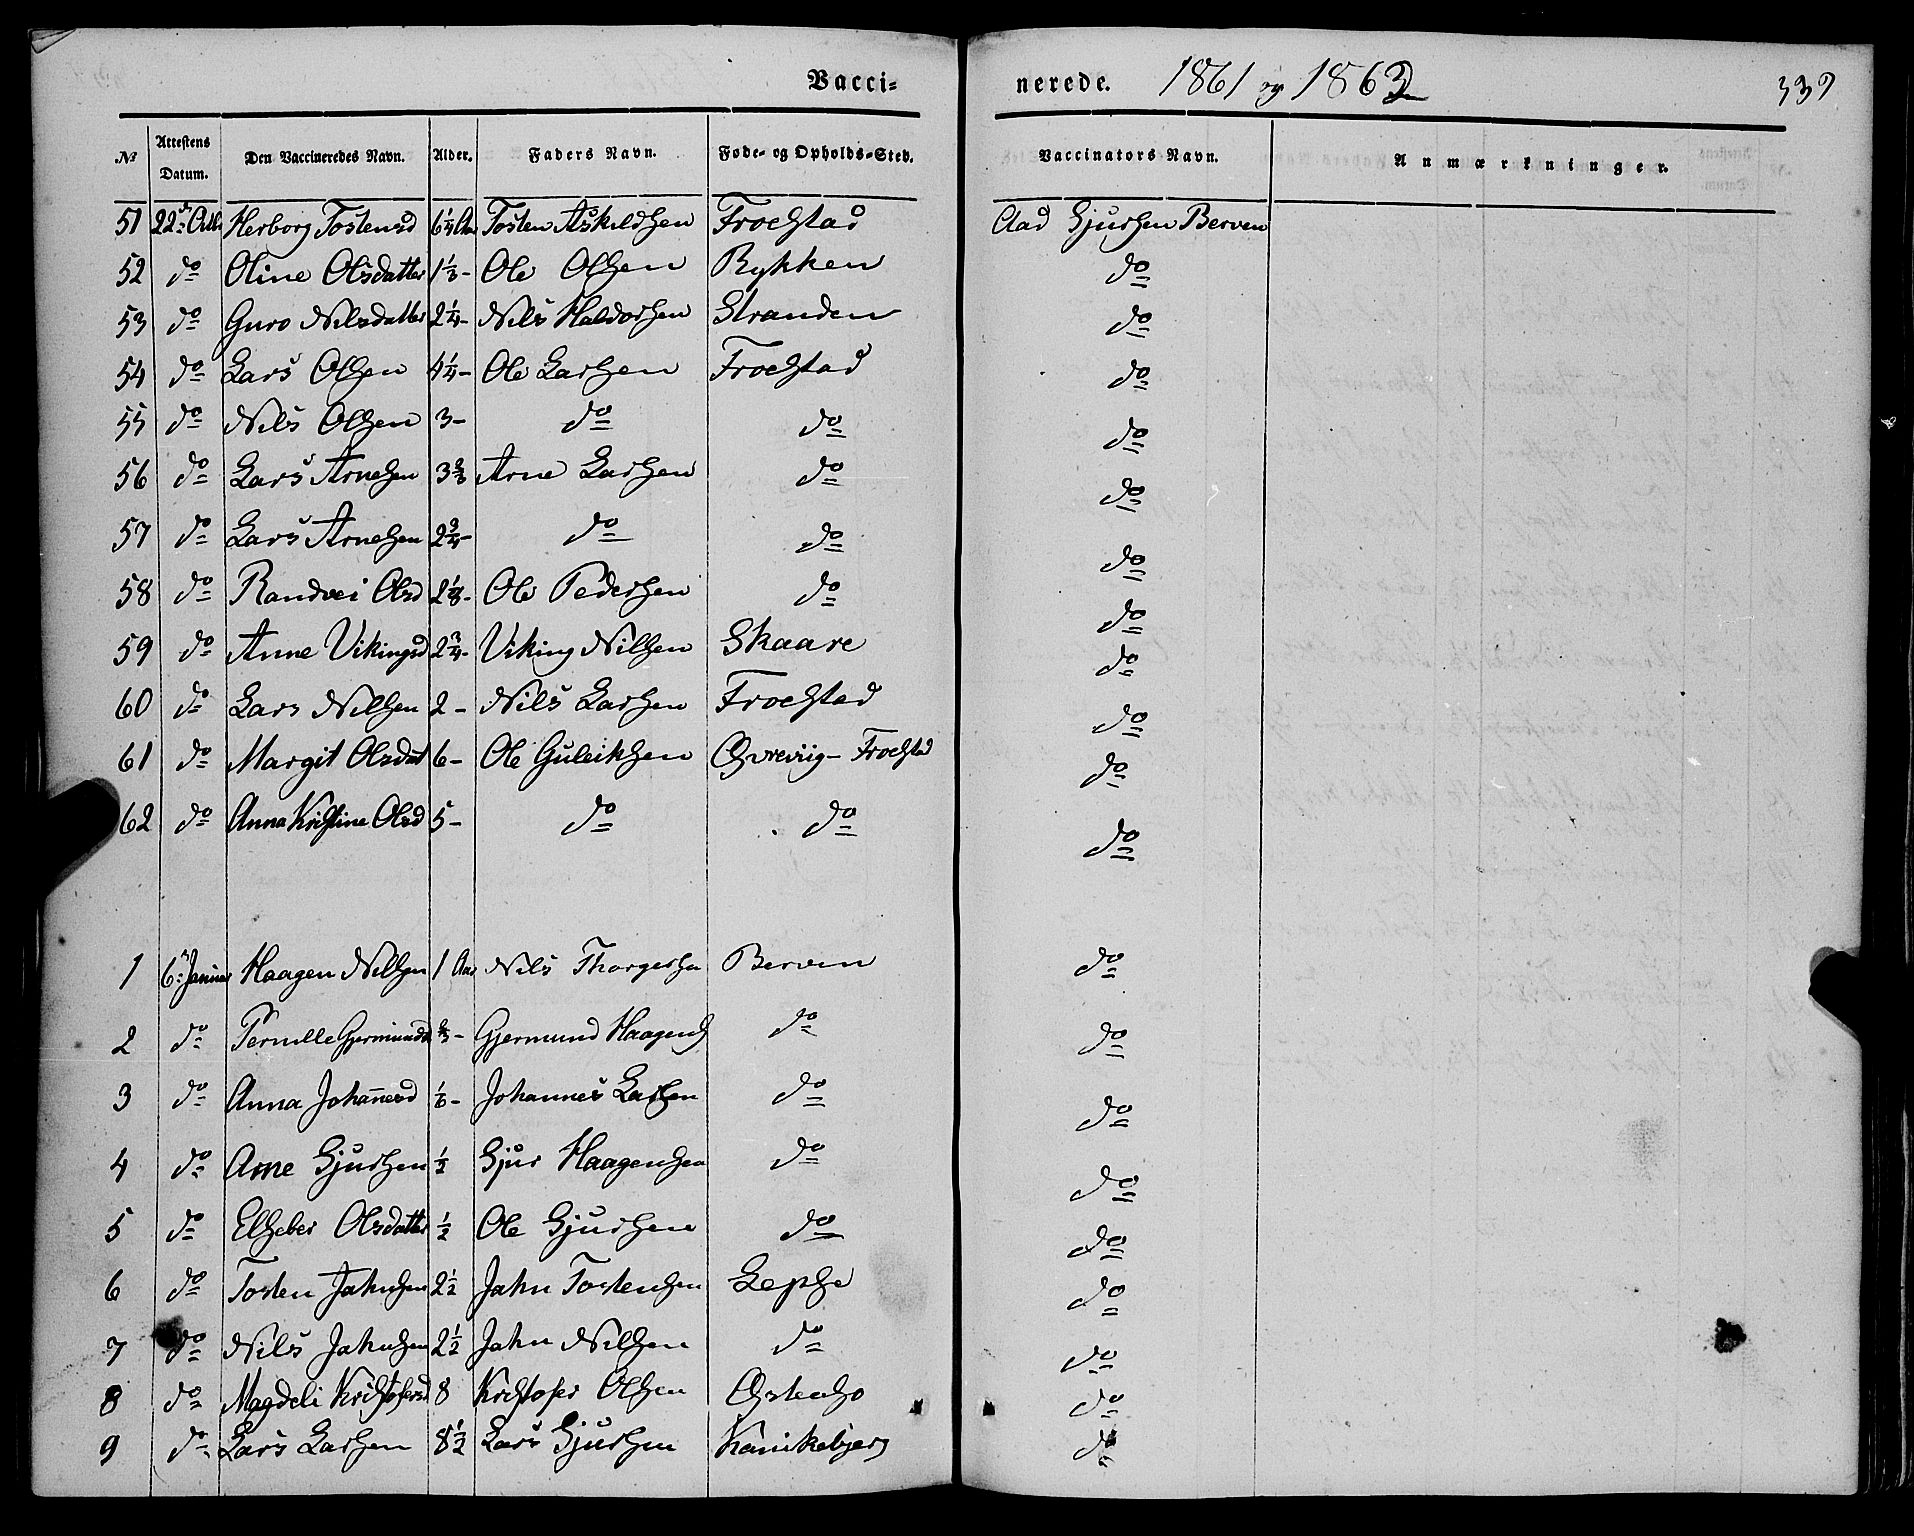 Vacci- nerede. 1861 og 1862
№ Attestens Datum. Den Vaccineredes Navn. Alder. Faders Navn. Føde- og Opholds-Sted. Vaccinators Navn. Anmærkninger.
51 22d Octb Herborg Tostensd 6 1/4 Aar Tosten Askildsen Froestad Aad Gjursen Berven
52 do Oline Olsdatter 1 1/3 - Ole Olsen Rykken do
53 do Guro Nilsdatter 2 1/4 - Nils Haldorsen Stranden do
54 do Lars Olsen 4 1/4 - Ole Larsen Froestad do
55 do Nils Olsen 3 - do do do
56 do Lars Arnesen 3 2/3 Arne Larsen do do
57 do Lars Arnesen 2 3/4 - do do do
58 do Randvei Olsd 2 1/8 - Ole Pedersen do do
59 do Anne Vikingsd 2 3/4 - Viking Nilsen Skaare do
60 do Lars Nilsen 2 - Nils Larsen Froestad do
61 do Margit Olsdat 6 - Ole Guleiksen - Froestad do
62 do Anna Kristine Olsd 5 - do do do
1 6: Januar Haagen Nilsen 1 Aar Nils Thorgersen Berven do
2 do Pernille Gjermunds 2/3 - Gjermund Haagens do do
3 do Anna Johannesd 1/6 - Johannes Larsen do do
4 do Arne Gjursen 1/2 Gjur Haagensen do do
5 do Elsebei Olsdatter 1/2 Ole Gjursen do do
6 do Tosten Jahnsen 2 1/2 Jahn Tostensen Lepse do
7 do Nils Jahnsen 2 1/2 Jahn Nilsen do do
8 do Magdeli Kristofersd 8 Kristofer Olsen Østensø do
9 do Lars Larsen 8 1/2 Lars Gjursen Kanikebjerg do